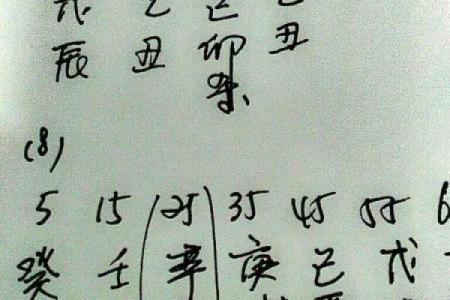 戊 乙 己 乙
辰 丑 卯 丑
(8)
5 15 (25) 35 45 55 6
癸 壬 辛 庚 己 戊